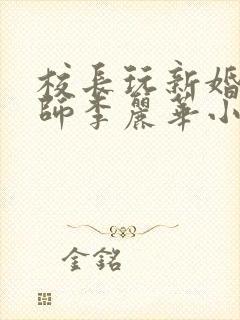 校長玩新婚
師李麗華小
金銘